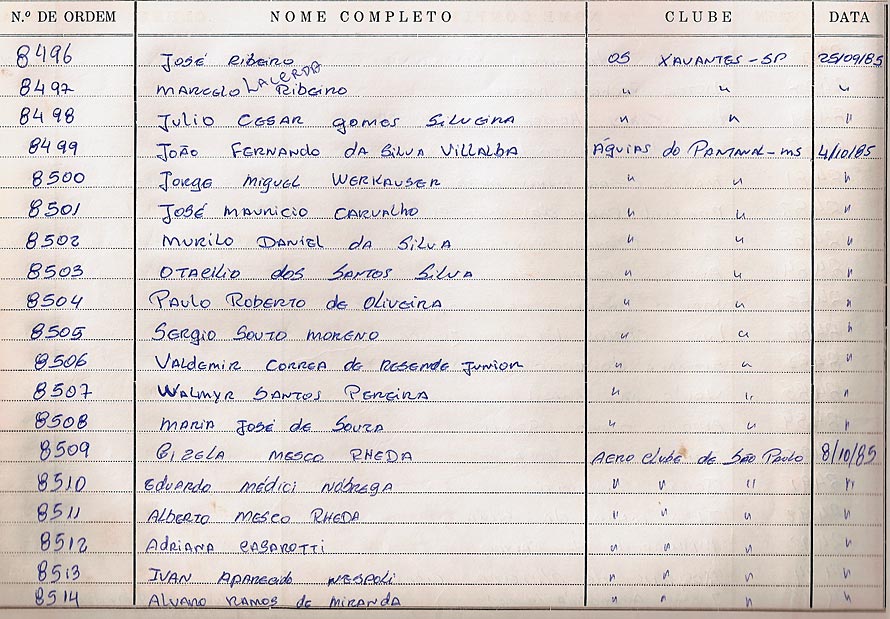 N.º DE ORDEM NOME COMPLETO CLUBE DATA
8496 José Ribeiro OS XAVANTES - SP 25/09/85
8497 MARCELO LACERDA Ribeiro " " "
8498 Julio CESAR gomes SilvEiRA " " "
8499 JOÃO FERNANDO da SilVA VillAlBA ÁGUIAS do PANTANAL - MS 4/10/85
8500 Jorge Miguel WERKAUSER " " "
8501 José MAURICIO CARVALHO " " "
8502 MURILO DANIEL da SilVA " " "
8503 OTACILIO dos SANTOS SilVA " " "
8504 PAULO ROBERTO de OliVEIRA " " "
8505 SERGIO SOUTO MORENO " " "
8506 VALDEMIR CORREA de RESENDE JUNIOR " " "
8507 WALMYR SANTOS PEREIRA " " "
8508 MARIA JOSÉ de SOUZA " " "
8509 GIZELA MESCO RHEDA AERO Clube de SÃO PAULO 8/10/85
8510 EDUARDO MÉDICI NÓBREGA " " " "
8511 ALBERTO MESCO RHEDA " " " "
8512 ADRIANA CASAROTTI " " " "
8513 IVAN APARECIDO NESPOLI " " " "
8514 ALVARO RAMOS de MIRANDA " " " "